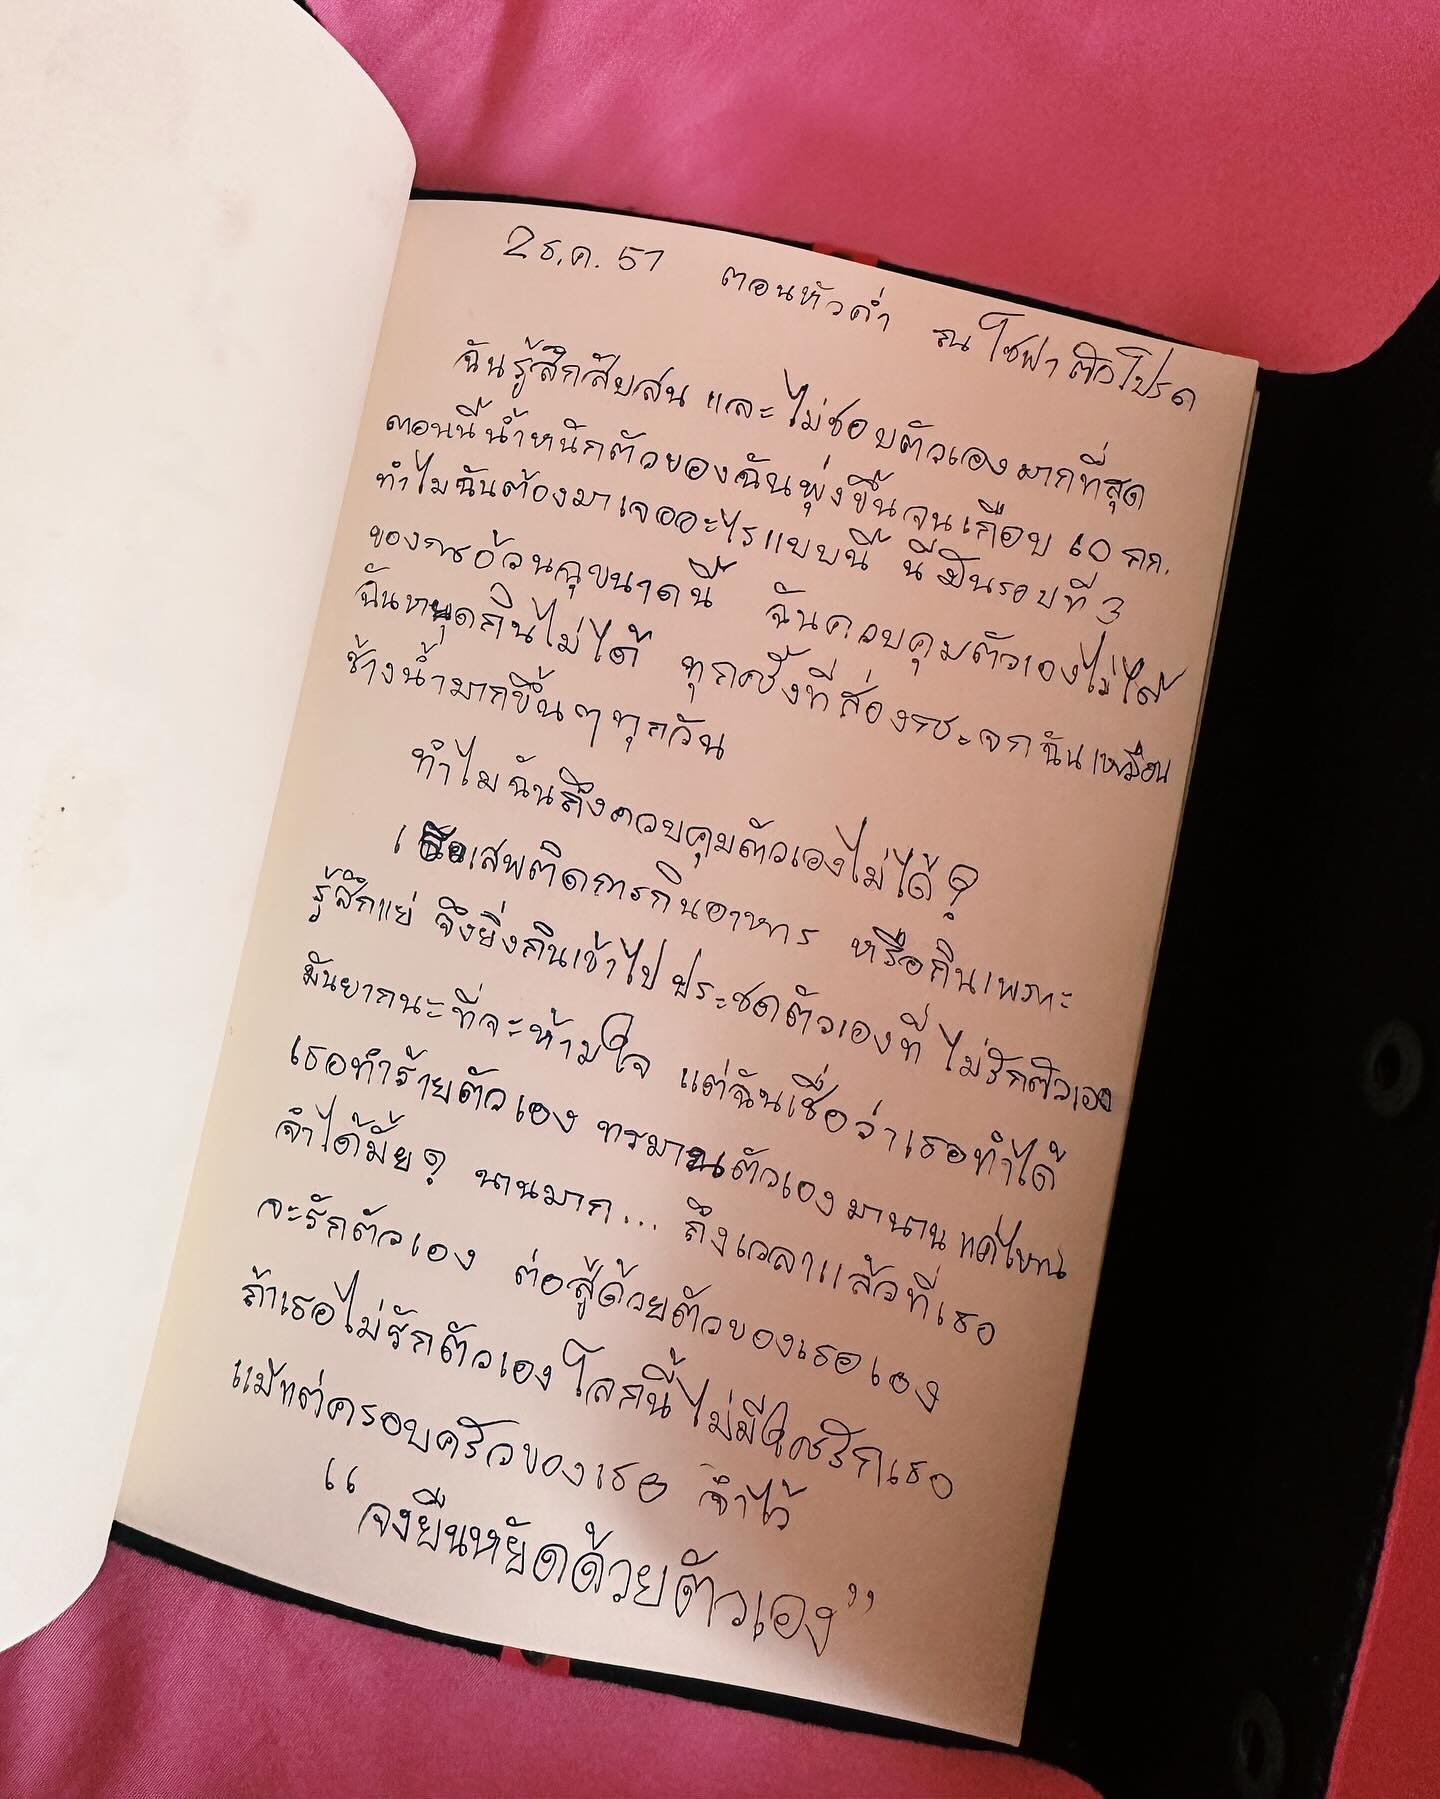 2 ธ.ค. 57 ตอนหัวค่ำ ณ โซฟาตัวโปรด
ฉันรู้สึกสับสน และไม่ชอบตัวเองมากที่สุด
ตอนนี้น้ำหนักตัวของฉันพุ่งขึ้นจนเกือบ 60 กก.
ทำไมฉันต้องมาเจออะไรแบบนี้ นี่มันรอบที่ 3
ของการอ้วนฉุขนาดนี้ ฉันควบคุมตัวเองไม่ได้
ฉันหยุดกินไม่ได้ ทุกครั้งที่ส่องกระจกฉันเหมือน
ช้างน้ำมากขึ้นๆทุกวัน
ทำไมฉันถึงควบคุมตัวเองไม่ได้?
เสพติดการกินอาหาร หรือกินเพราะ
รู้สึกแย่ จึงยิ่งกินเข้าไป ประชดตัวเองที่ไม่รักตัวเอง
มันยากนะที่จะห้ามใจ แต่ฉันเชื่อว่าเธอทำได้
เธอทำร้ายตัวเอง ทรมานตัวเองมานานแค่ไหน
จำได้มั้ย? นานมาก... ถึงเวลาแล้วที่เธอ
จะรักตัวเอง ต่อสู้ด้วยตัวของเธอเอง
ถ้าเธอไม่รักตัวเอง โลกนี้ไม่มีใครรักเธอ
แม้แต่ครอบครัวของเธอ จำไว้
“จงยืนหยัดด้วยตัวเอง”